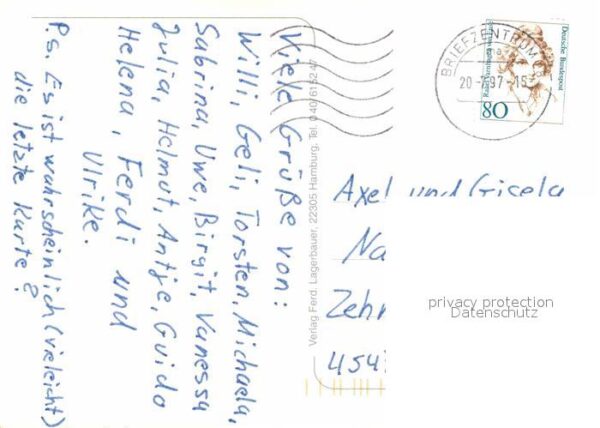 Viele Grüße von:
Willi, Geli, Torsten, Michaela,
Sabrina, Uwe, Birgit, Vanessa
Julia, Helmut, Antje, Guido
Helena, Ferdi und
Ulrike.
P.s. Es ist wahrscheinlich (vieleicht)
die letzte Karte?
Verlag Ferd. Lagerbauer, 22305 Hamburg, Tel. 0 40/61 52 47
BRIEFZENTRUM
20-7.97-15
Deutsche Bundespost
80
Axel und Gisela
Na
Zehn
454
privacy protection
Datenschutz